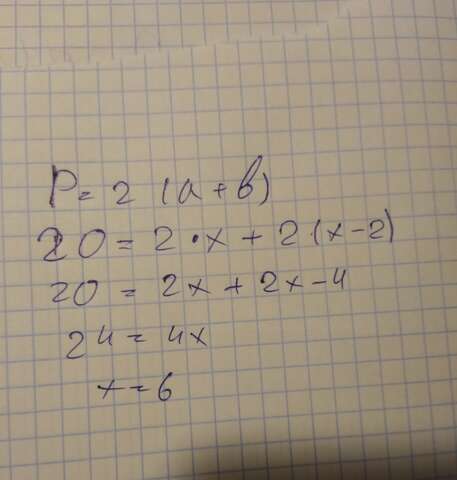 P = 2 (a + b)
20 = 2 · x + 2 (x - 2)
20 = 2x + 2x - 4
24 = 4x
x = 6